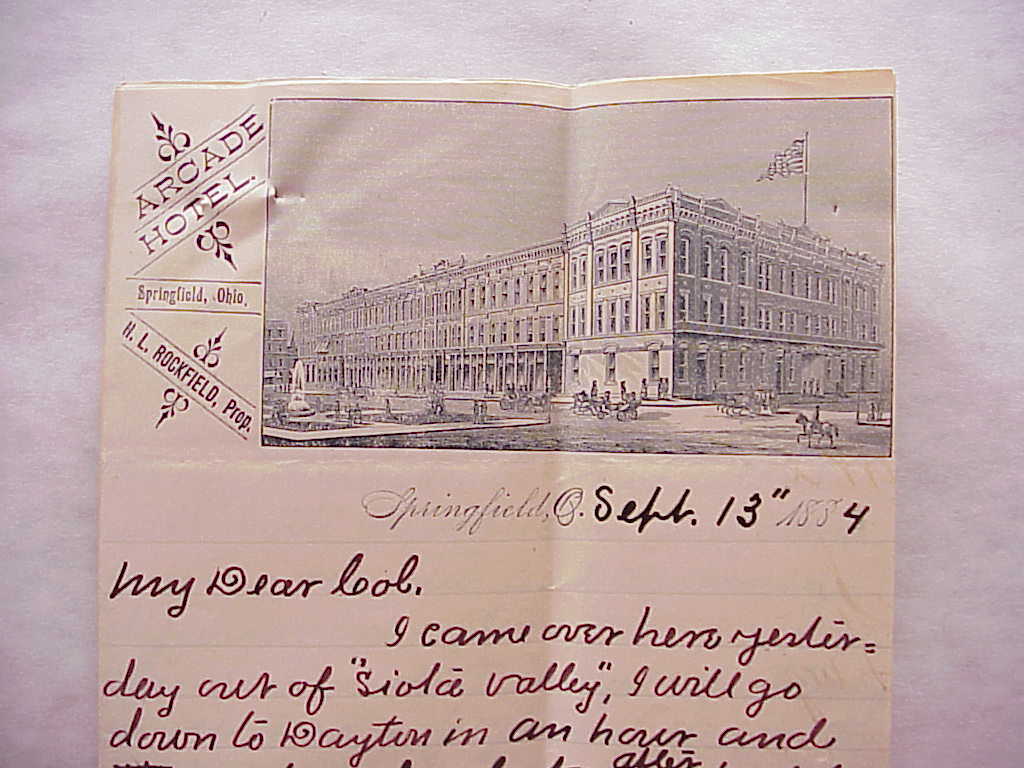 ARCADE
HOTEL.
Springfield, Ohio.
H. L. ROCKFIELD, Prop.
Springfield, O. Sept. 13" 1884
My Dear Col.
I came over here yester=
day out of "Siota valley", I will go
down to Dayton in an hour and
after